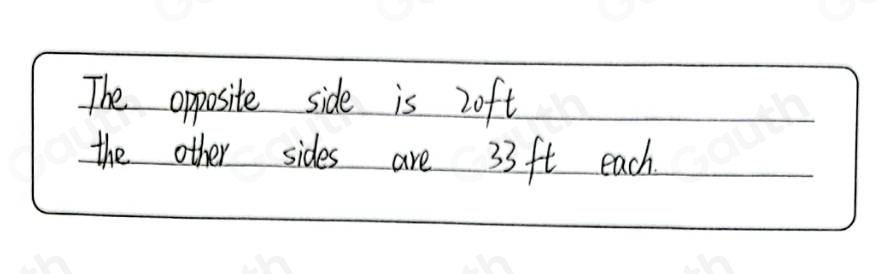 The opposite side is 20ft
the other sides are 33 ft each.